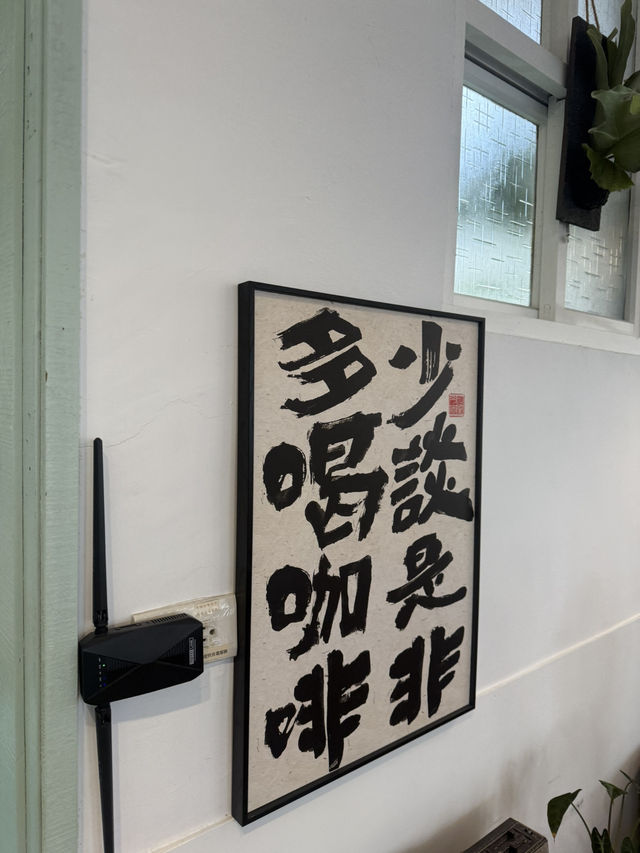 少談是非
多喝咖啡